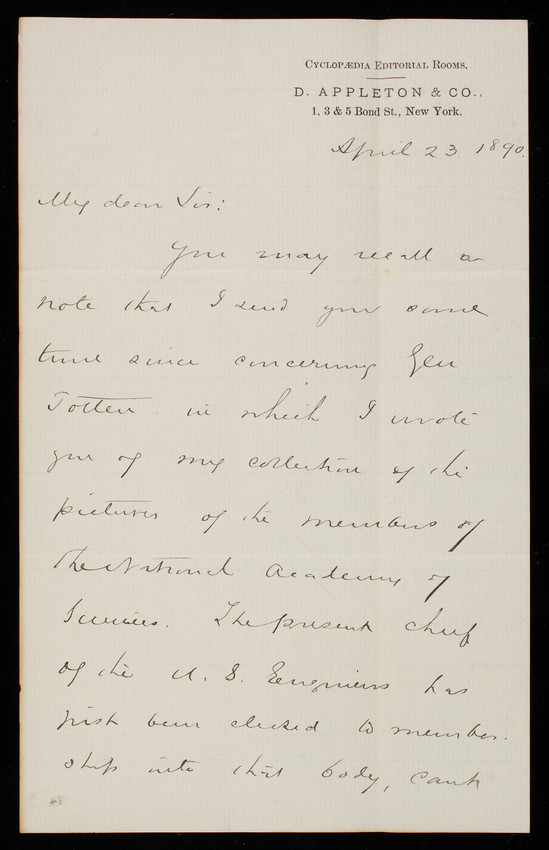 CYCLOPÆDIA EDITORIAL ROOMS.
D. APPLETON & CO.,
1, 3 & 5 Bond St., New York.
April 23 1890.
My dear Sir:
You may recall a
note that I send you some
time since concerning Gen
Totten in which I wrote
you of my collection of the
pictures of the members of
the National Academy of
Sciences. The present chief
of the U. S. Engineers has
just been elected to member-
ship into this body, cant